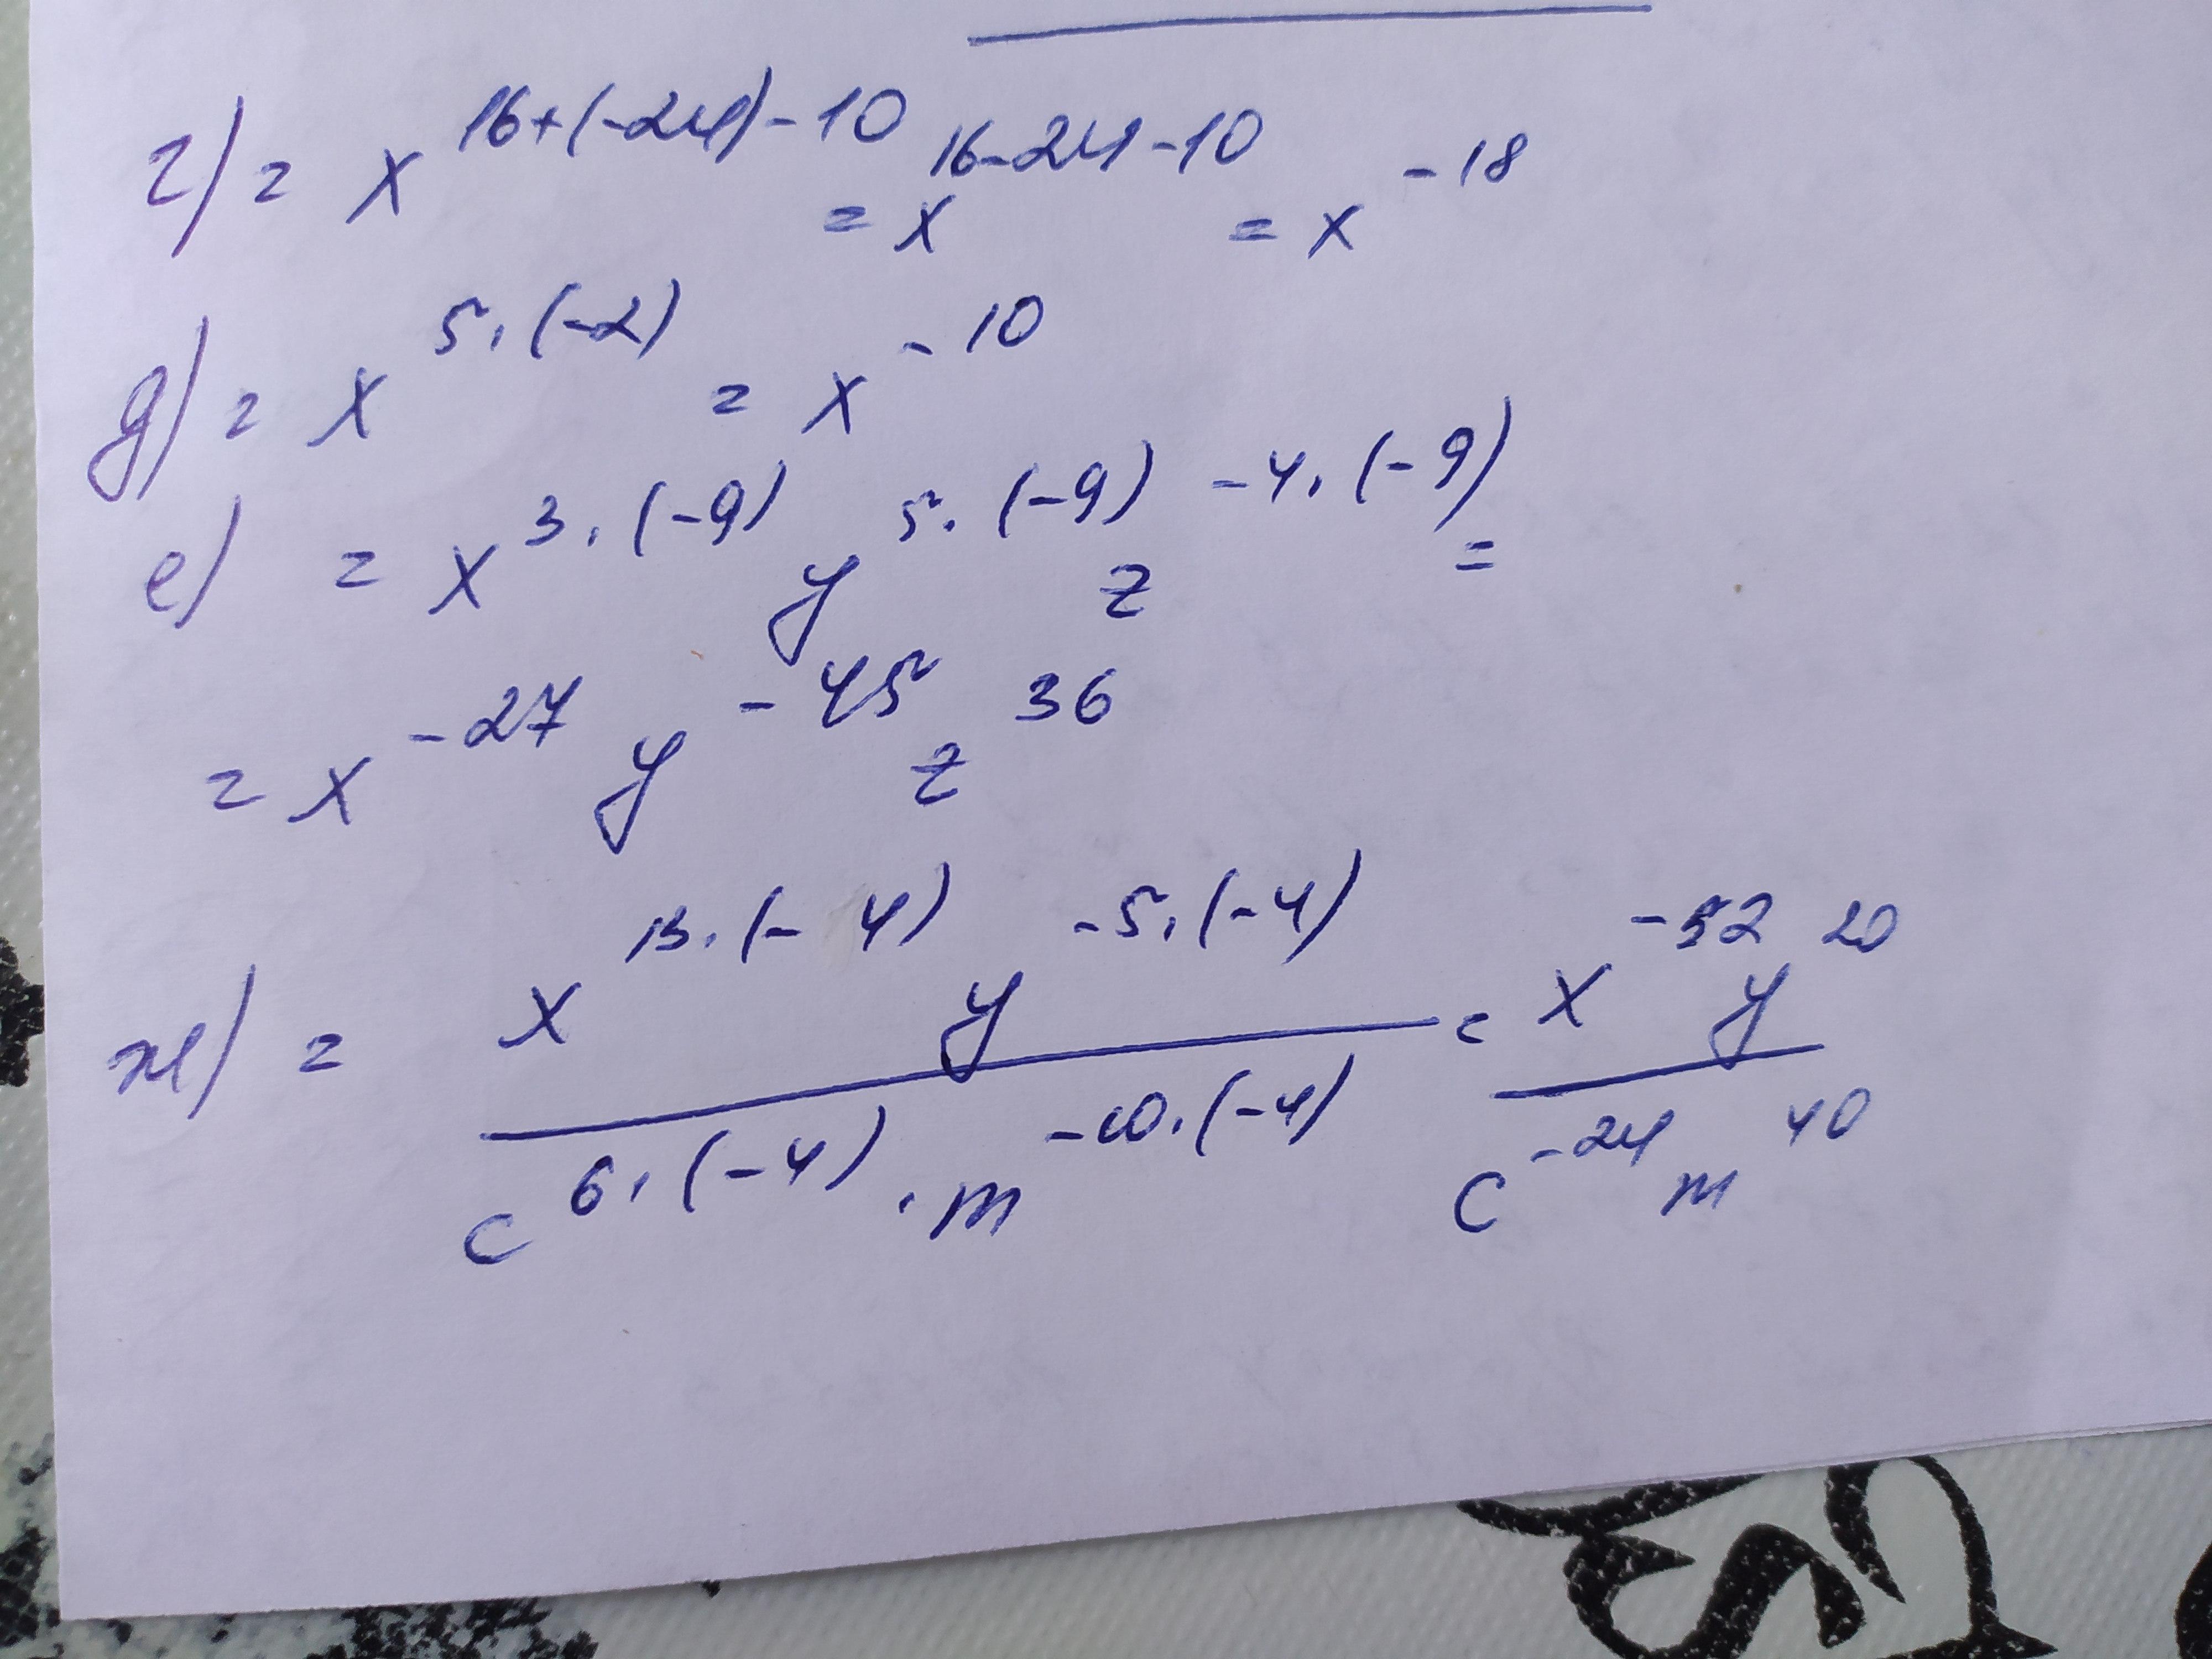 г) = x^{16+(-24)-10} = x^{16-24-10} = x^{-18}
д) = x^{5·(-2)} = x^{-10}
е) = x^{3·(-9)} y^{5·(-9)} z^{-4·(-9)} =
= x^{-27} y^{-45} z^{36}
ж) = \frac{x^{13·(-4)} y^{-5·(-4)}}{c^{6·(-4)} · m^{-10·(-4)}} = \frac{x^{-52} y^{20}}{c^{-24} m^{40}}